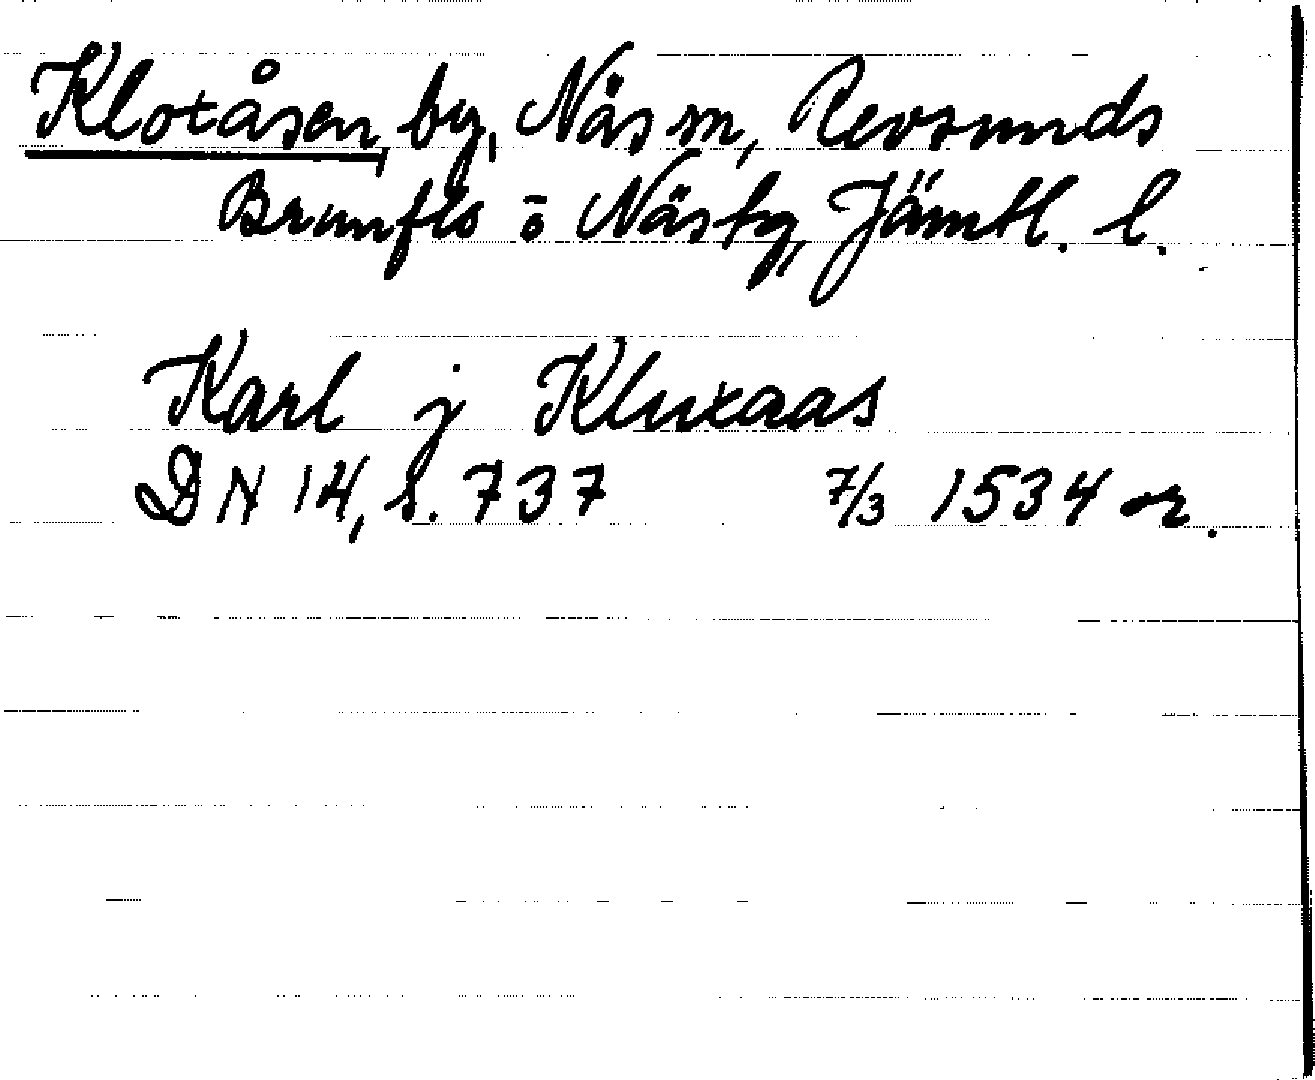 Klotåsen, by, Näs sn, Revsunds
Brunflo o Näs tg, Jämtl. l.
Karl j Klutaas
DN 14, s. 737 7/3 1534 or.